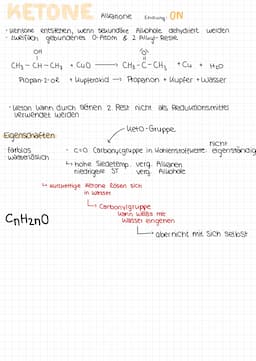 KETONE Alkanone Endung: ON
• Ketone entstehen, wenn sekundäre Alkohole dehydriert werden
• zweifach gebundenes O-Atom & 2 Alkyl-Reste
OH O
CH₃ - CH - CH₃ + CuO → CH₃ - C - CH₃ + Cu + H₂O
Propan-2-ol + Kupferoxid → Propanon + Kupfer + Wasser
• Keton kann durch seinen 2. Rest nicht als Reduktionsmittel
verwendet werden
Keto-Gruppe
Eigenschaften:
farblos
wasserlöslich
• C=O Carbonylgruppe in Kohlenstoffkette: nicht eigenständig
↳ höhere Siedetemp. verg. Alkanen
niedrigere ST verg. Alkohole
↳ kurzkettige Ketone lösen sich
in Wasser
↳ Carbonylgruppe
kann WBBs mit
Wasser eingehen
↳ aber nicht mit sich selbst
CnH2nO